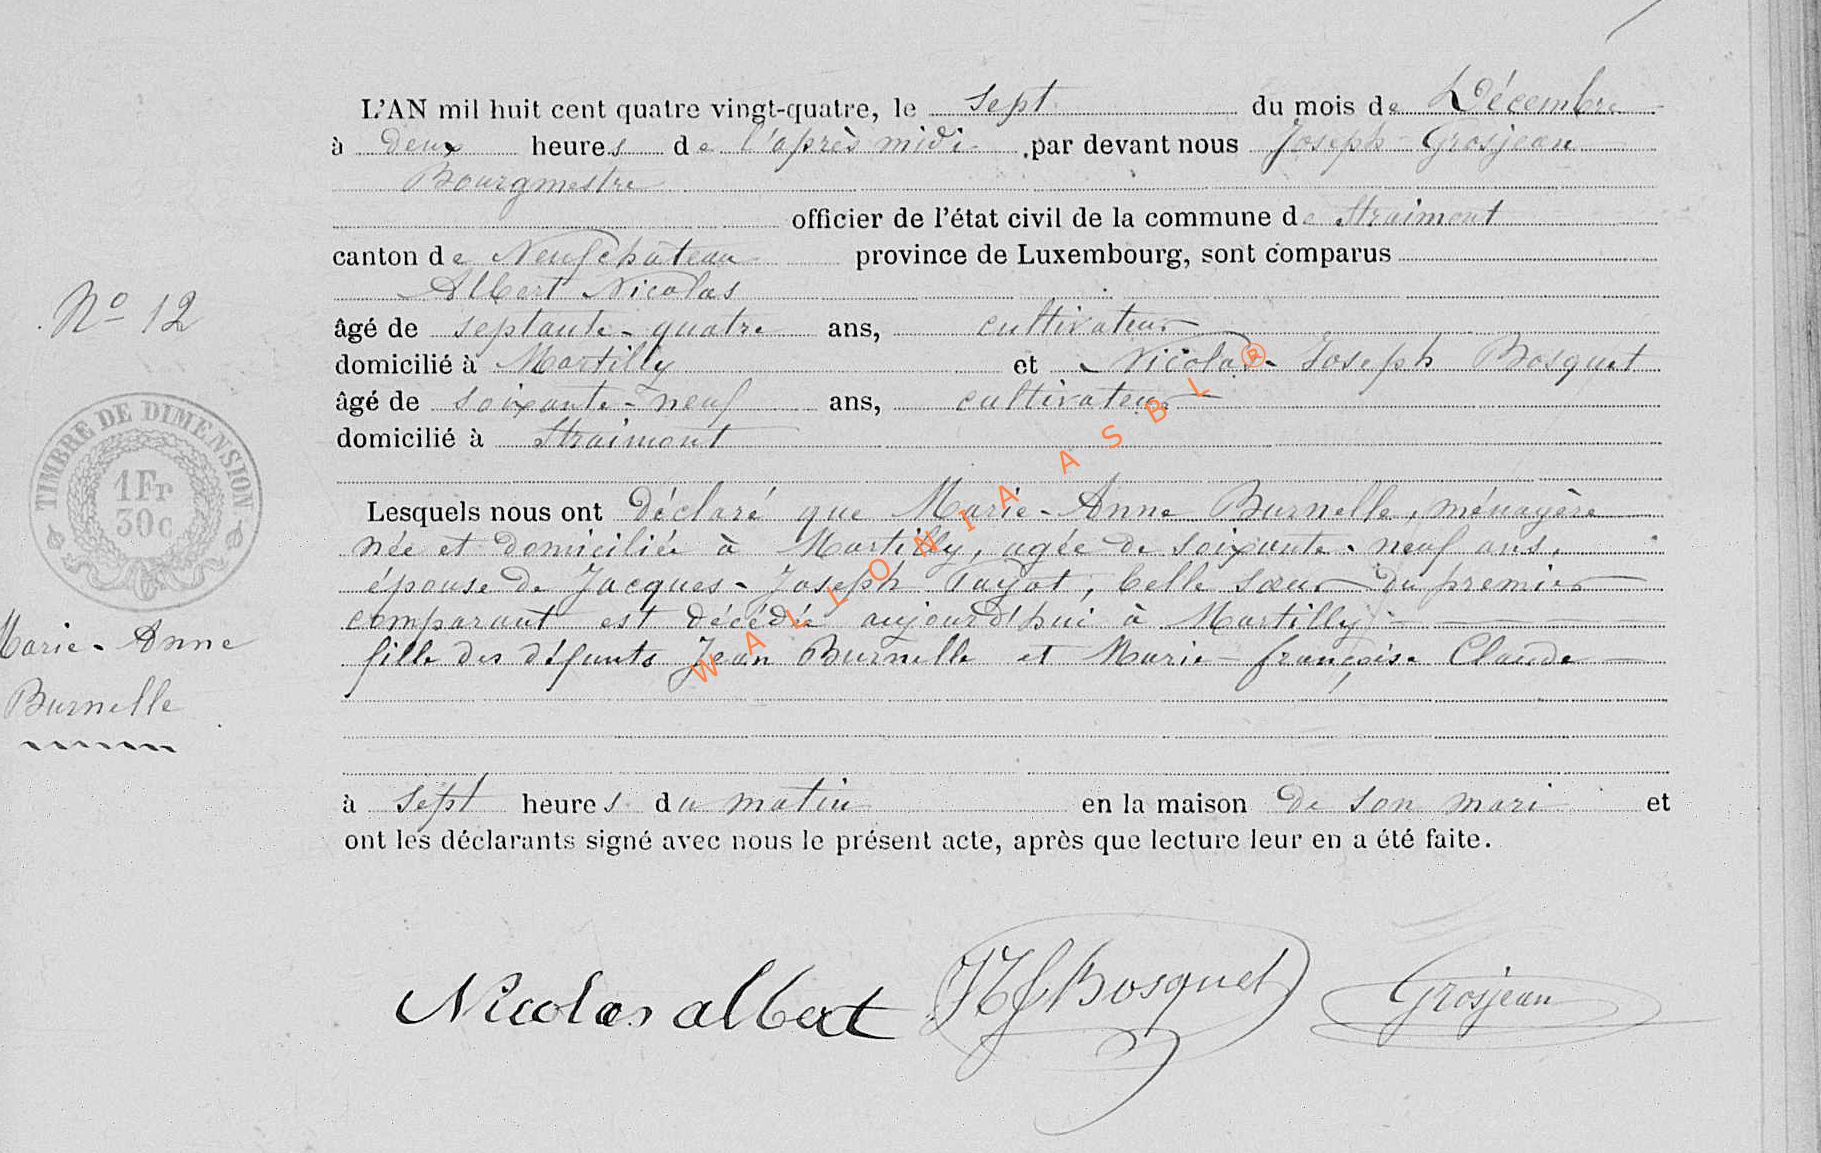 L'AN mil huit cent quatre vingt-quatre, le sept du mois de Décembre
à deux heures de l'après midi par devant nous Joseph Grosjean
Bourgmestre
officier de l'état civil de la commune de Straimont
canton de Neufchateau province de Luxembourg, sont comparus
Albert Nicolas
âgé de septante-quatre ans, cultivateur
domicilié à Martilly et Nicolas-Joseph Bosquet
âgé de soixante-neuf ans, cultivateur
domicilié à Straimont
Lesquels nous ont déclaré que Marie-Anne Burnelle, ménagère
née et domiciliée à Martilly, agée de soixante-neuf ans,
épouse de Jacques-Joseph Payot, belle sœur du premier
comparant est décédée aujourd'hui à Martilly
fille des défunts Jean Burnelle et Marie-françoise Claude
à sept heures du matin en la maison de son mari et
ont les déclarants signé avec nous le présent acte, après que lecture leur en a été faite.
Nicolas albert NJBosquet Grosjean
No 12
TIMBRE DE DIMENSION
1Fr
30c
Marie-Anne
Burnelle
WALLONIA ASBL ®